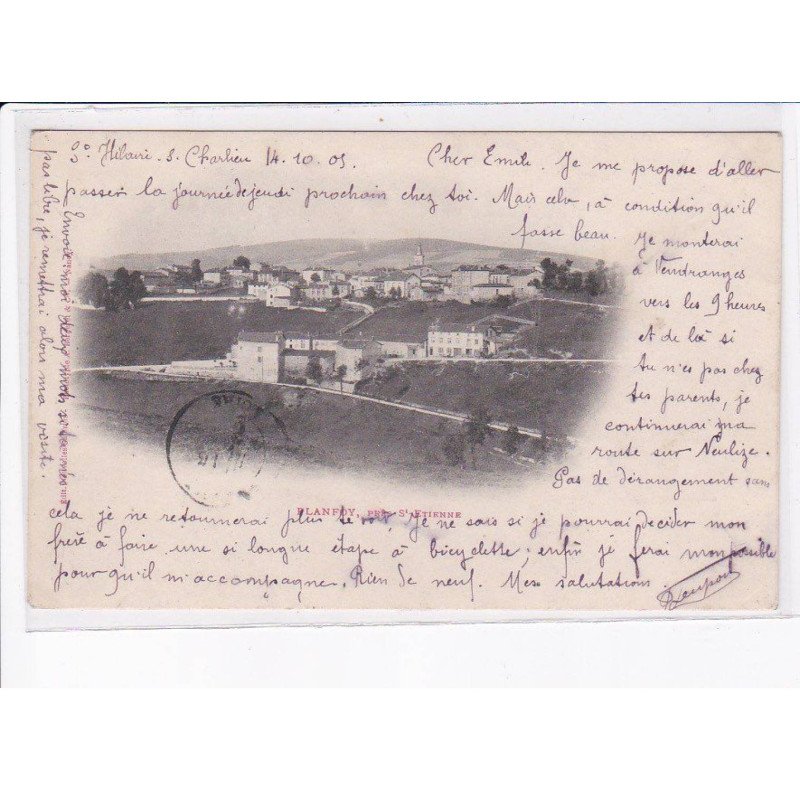 St Hilaire. s. Charlieu 14.10.05. Cher Emile. Je me propose d'aller
passer la journée de jeudi prochain chez toi. Mais cela, à condition qu'il
fasse beau.
Je monterai
à Vendranges
vers les 9 heures
et de là si
tu n'es pas chez
tes parents, je
continuerai ma
route sur Neulize.
Pas de dérangement sans
cela je ne retournerai plus te voir. Je ne sais si je pourrai décider mon
frère à faire une si longue étape à bicyclette; enfin je ferai mon possible
pour qu'il m'accompagne. Rien de neuf. Mes salutations.
PLANFOY, PRÈS ST-ETIENNE
Envoie-moi deux mots si tu n'es
pas libre, je remettrai alors ma visite.